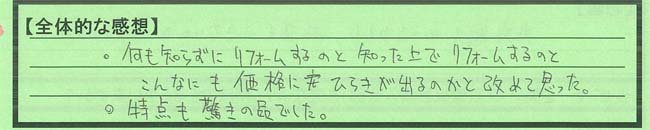 【全体的な感想】
。何も知らずにリフォームするのと知った上でリフォームするのと
こんなにも価格に ひらきが出るのかと改めて思った。
。特点も驚きの品でした。